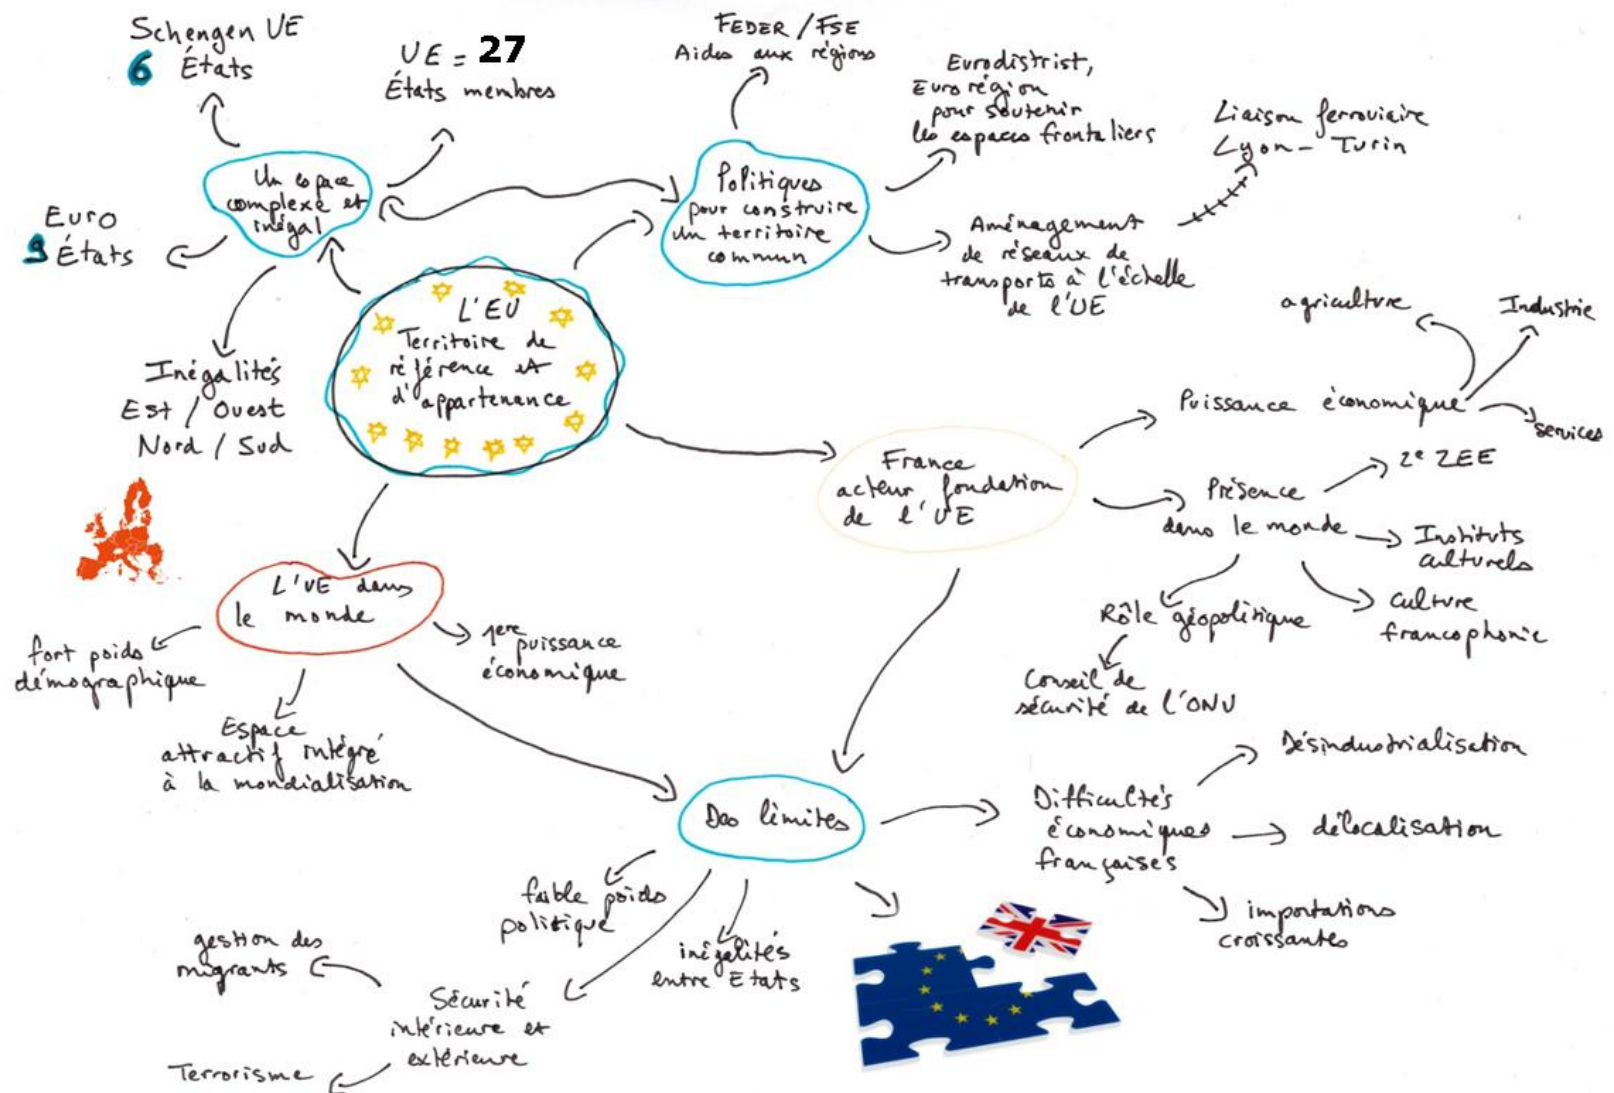 Schengen UE
6 États
UE = 27
États membres
FEDER / FSE
Aides aux régions
Eurodistrist,
Euro région
pour soutenir
les espaces frontaliers
Liaison ferroviaire
Lyon - Turin
Un espace
complexe et
inégal
Politiques
pour construire
un territoire
commun
Euro
9 États
Aménagement
de réseaux de
transports à l'échelle
de l'UE
L'EU
Territoire de
référence et
d'appartenance
Inégalités
Est / Ouest
Nord / Sud
agriculture
Industrie
Puissance économique
services
France
acteur fondation
de l'UE
2e ZEE
Présence
dans le monde
Instituts
culturels
culture
francophonie
Rôle géopolitique
Conseil de
sécurité de l'ONU
L'UE dans
le monde
fort poids
démographique
1ere
puissance
économique
Espace
attractif intégré
à la mondialisation
Des limites
Difficultés
économiques
françaises
Désindustrialisation
délocalisation
importations
croissantes
faible poids
politique
inégalités
entre Etats
gestion des
migrants
Sécurité
intérieure et
extérieure
Terrorisme